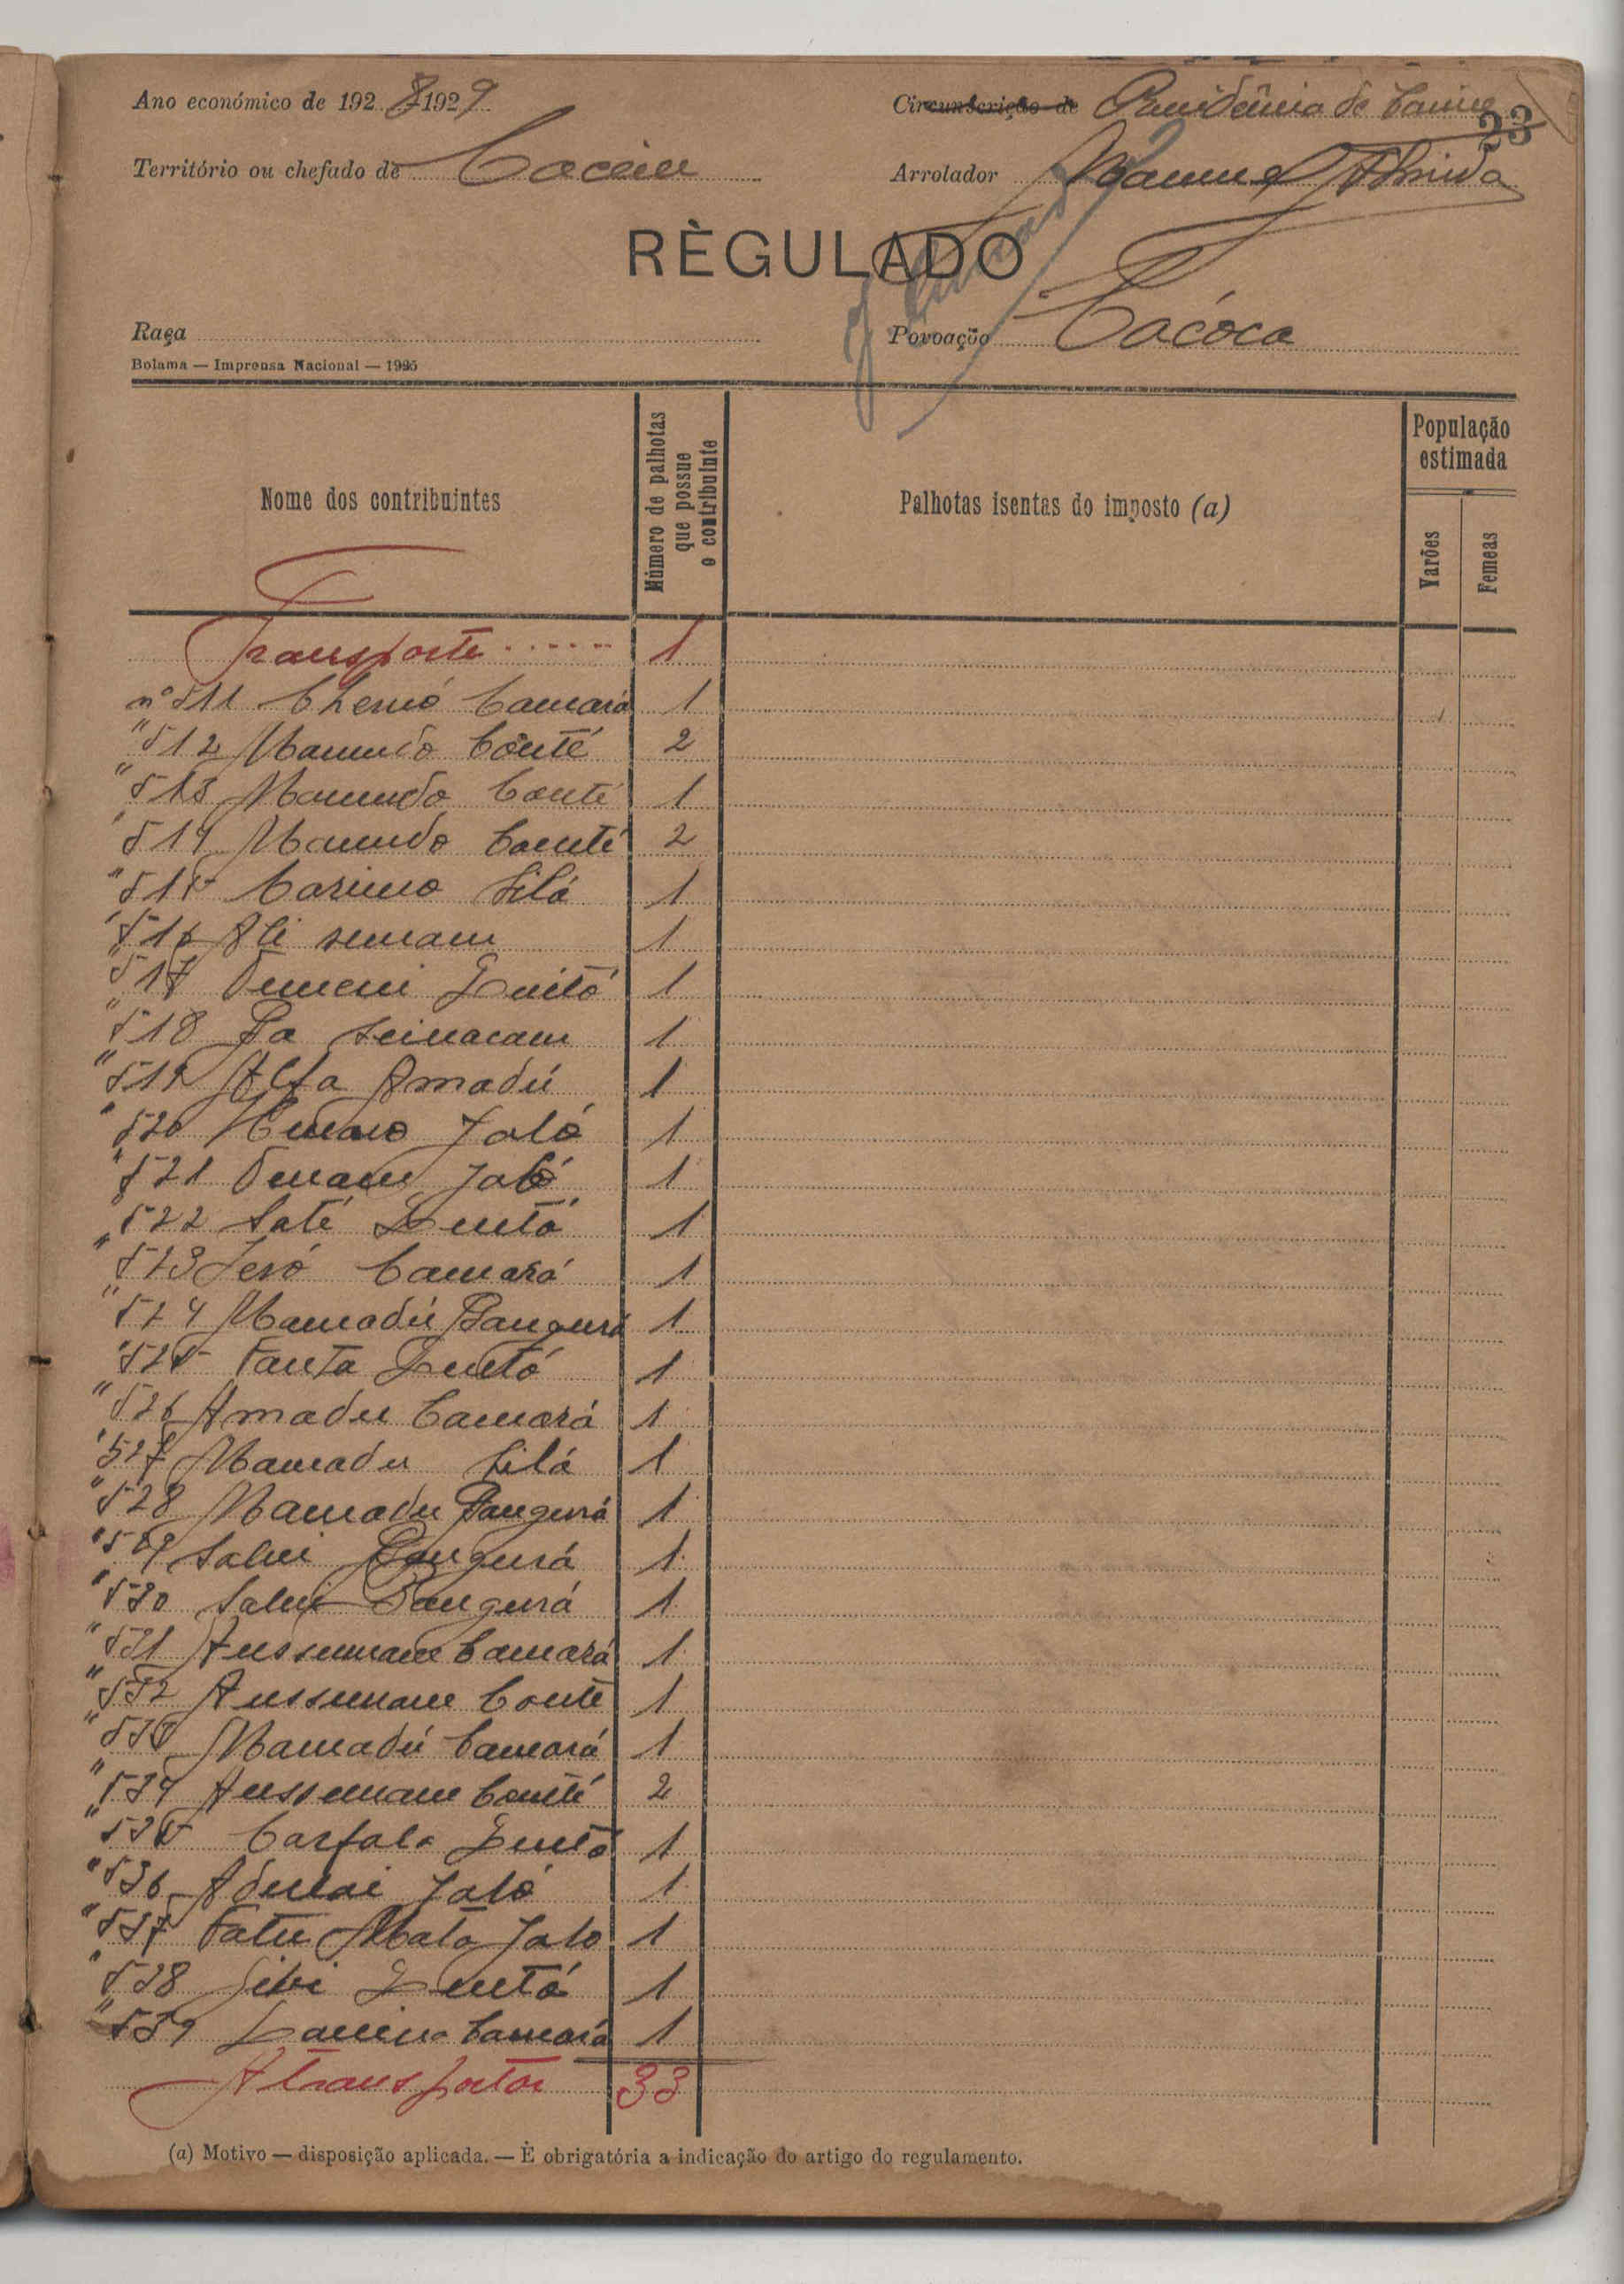 Ano económico de 1928-1929
Circunscrição de Residência de Cacine
23
Território ou chefado de Cacine
Arrolador Manuel Almida
RÈGULADO
Raça
Povoação Cacóca
Bolama — Imprensa Nacional — 1925
Nome dos contribuintes
Número de palhotas que possue o contribuinte
Palhotas isentas do imposto (a)
População estimada
Varões
Femeas
Transporte ...... 1
nº 511 Chernó Camará 1
" 512 Mamudo Conté 2
" 513 Mamudo Conté 1
" 514 Mamudo Conté 2
" 515 Carimo Silá 1
" 516 Ali 1
" 517 1
" 518 1
" 519 Alfa Amadú 1
" 520 Jaló 1
" 521 Jaló 1
" 522 Saté 1
" 523 Jeró Camará 1
" 524 Mamadú Bangurá 1
" 525 Fanta 1
" 526 Amadu Camará 1
" 527 Mamadu Silá 1
" 528 Mamadu Bangurá 1
" 529 Bangurá 1
" 530 Bangurá 1
" 531 Aussumane Camará 1
" 532 Aussumane Conté 1
" 533 Mamadú Camará 1
" 534 Aussumane Conté 2
" 535 Carfala 1
" 536 Jaló 1
" 537 Fatu Mata Jalo 1
" 538 1
" 539 Lamine Camará 1
A transportar 33
(a) Motivo — disposição aplicada. — É obrigatória a indicação do artigo do regulamento.